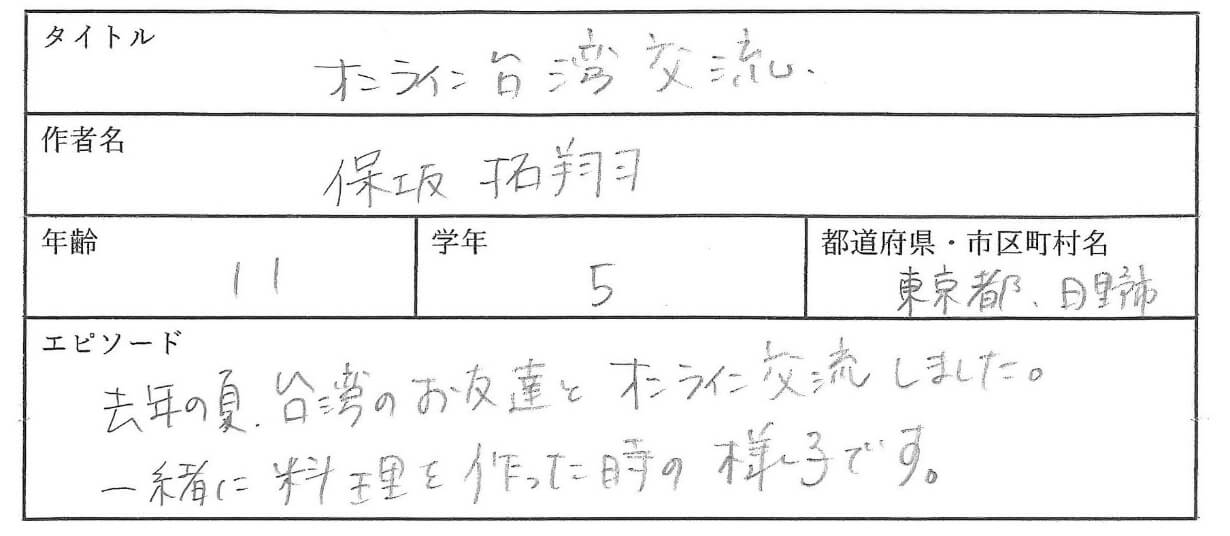 タイトル
オンライン台湾交流、
作者名
保坂 拓翔
年齢
11
学年
5
都道府県・市区町村名
東京都、日野市
エピソード
去年の夏、台湾のお友達とオンライン交流しました。
一緒に料理を作った時の様子です。